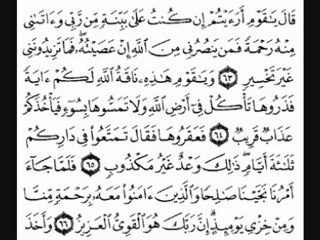 قَالَ يَٰقَوْمِ أَرَءَيْتُمْ إِن كُنتُ عَلَىٰ بَيِّنَةٍ مِّن رَّبِّي وَءَاتَىٰنِي
مِنْهُ رَحْمَةً فَمَن يَنصُرُنِي مِنَ ٱللَّهِ إِنْ عَصَيْتُهُۥ فَمَا تَزِيدُونَنِي
غَيْرَ تَخْسِيرٍ ٦٣ وَيَٰقَوْمِ هَٰذِهِۦ نَاقَةُ ٱللَّهِ لَكُمْ ءَايَةً
فَذَرُوهَا تَأْكُلْ فِيٓ أَرْضِ ٱللَّهِ وَلَا تَمَسُّوهَا بِسُوٓءٍ فَيَأْخُذَكُمْ
عَذَابٌ قَرِيبٌ ٦٤ فَعَقَرُوهَا فَقَالَ تَمَتَّعُوا۟ فِي دَارِكُمْ
ثَلَٰثَةَ أَيَّامٍ ذَٰلِكَ وَعْدٌ غَيْرُ مَكْذُوبٍ ٦٥ فَلَمَّا جَآءَ
أَمْرُنَا نَجَّيْنَا صَٰلِحًا وَٱلَّذِينَ ءَامَنُوا۟ مَعَهُۥ بِرَحْمَةٍ مِّنَّا
وَمِنْ خِزْيِ يَوْمِئِذٍ إِنَّ رَبَّكَ هُوَ ٱلْقَوِيُّ ٱلْعَزِيزُ ٦٦ وَأَخَذَ